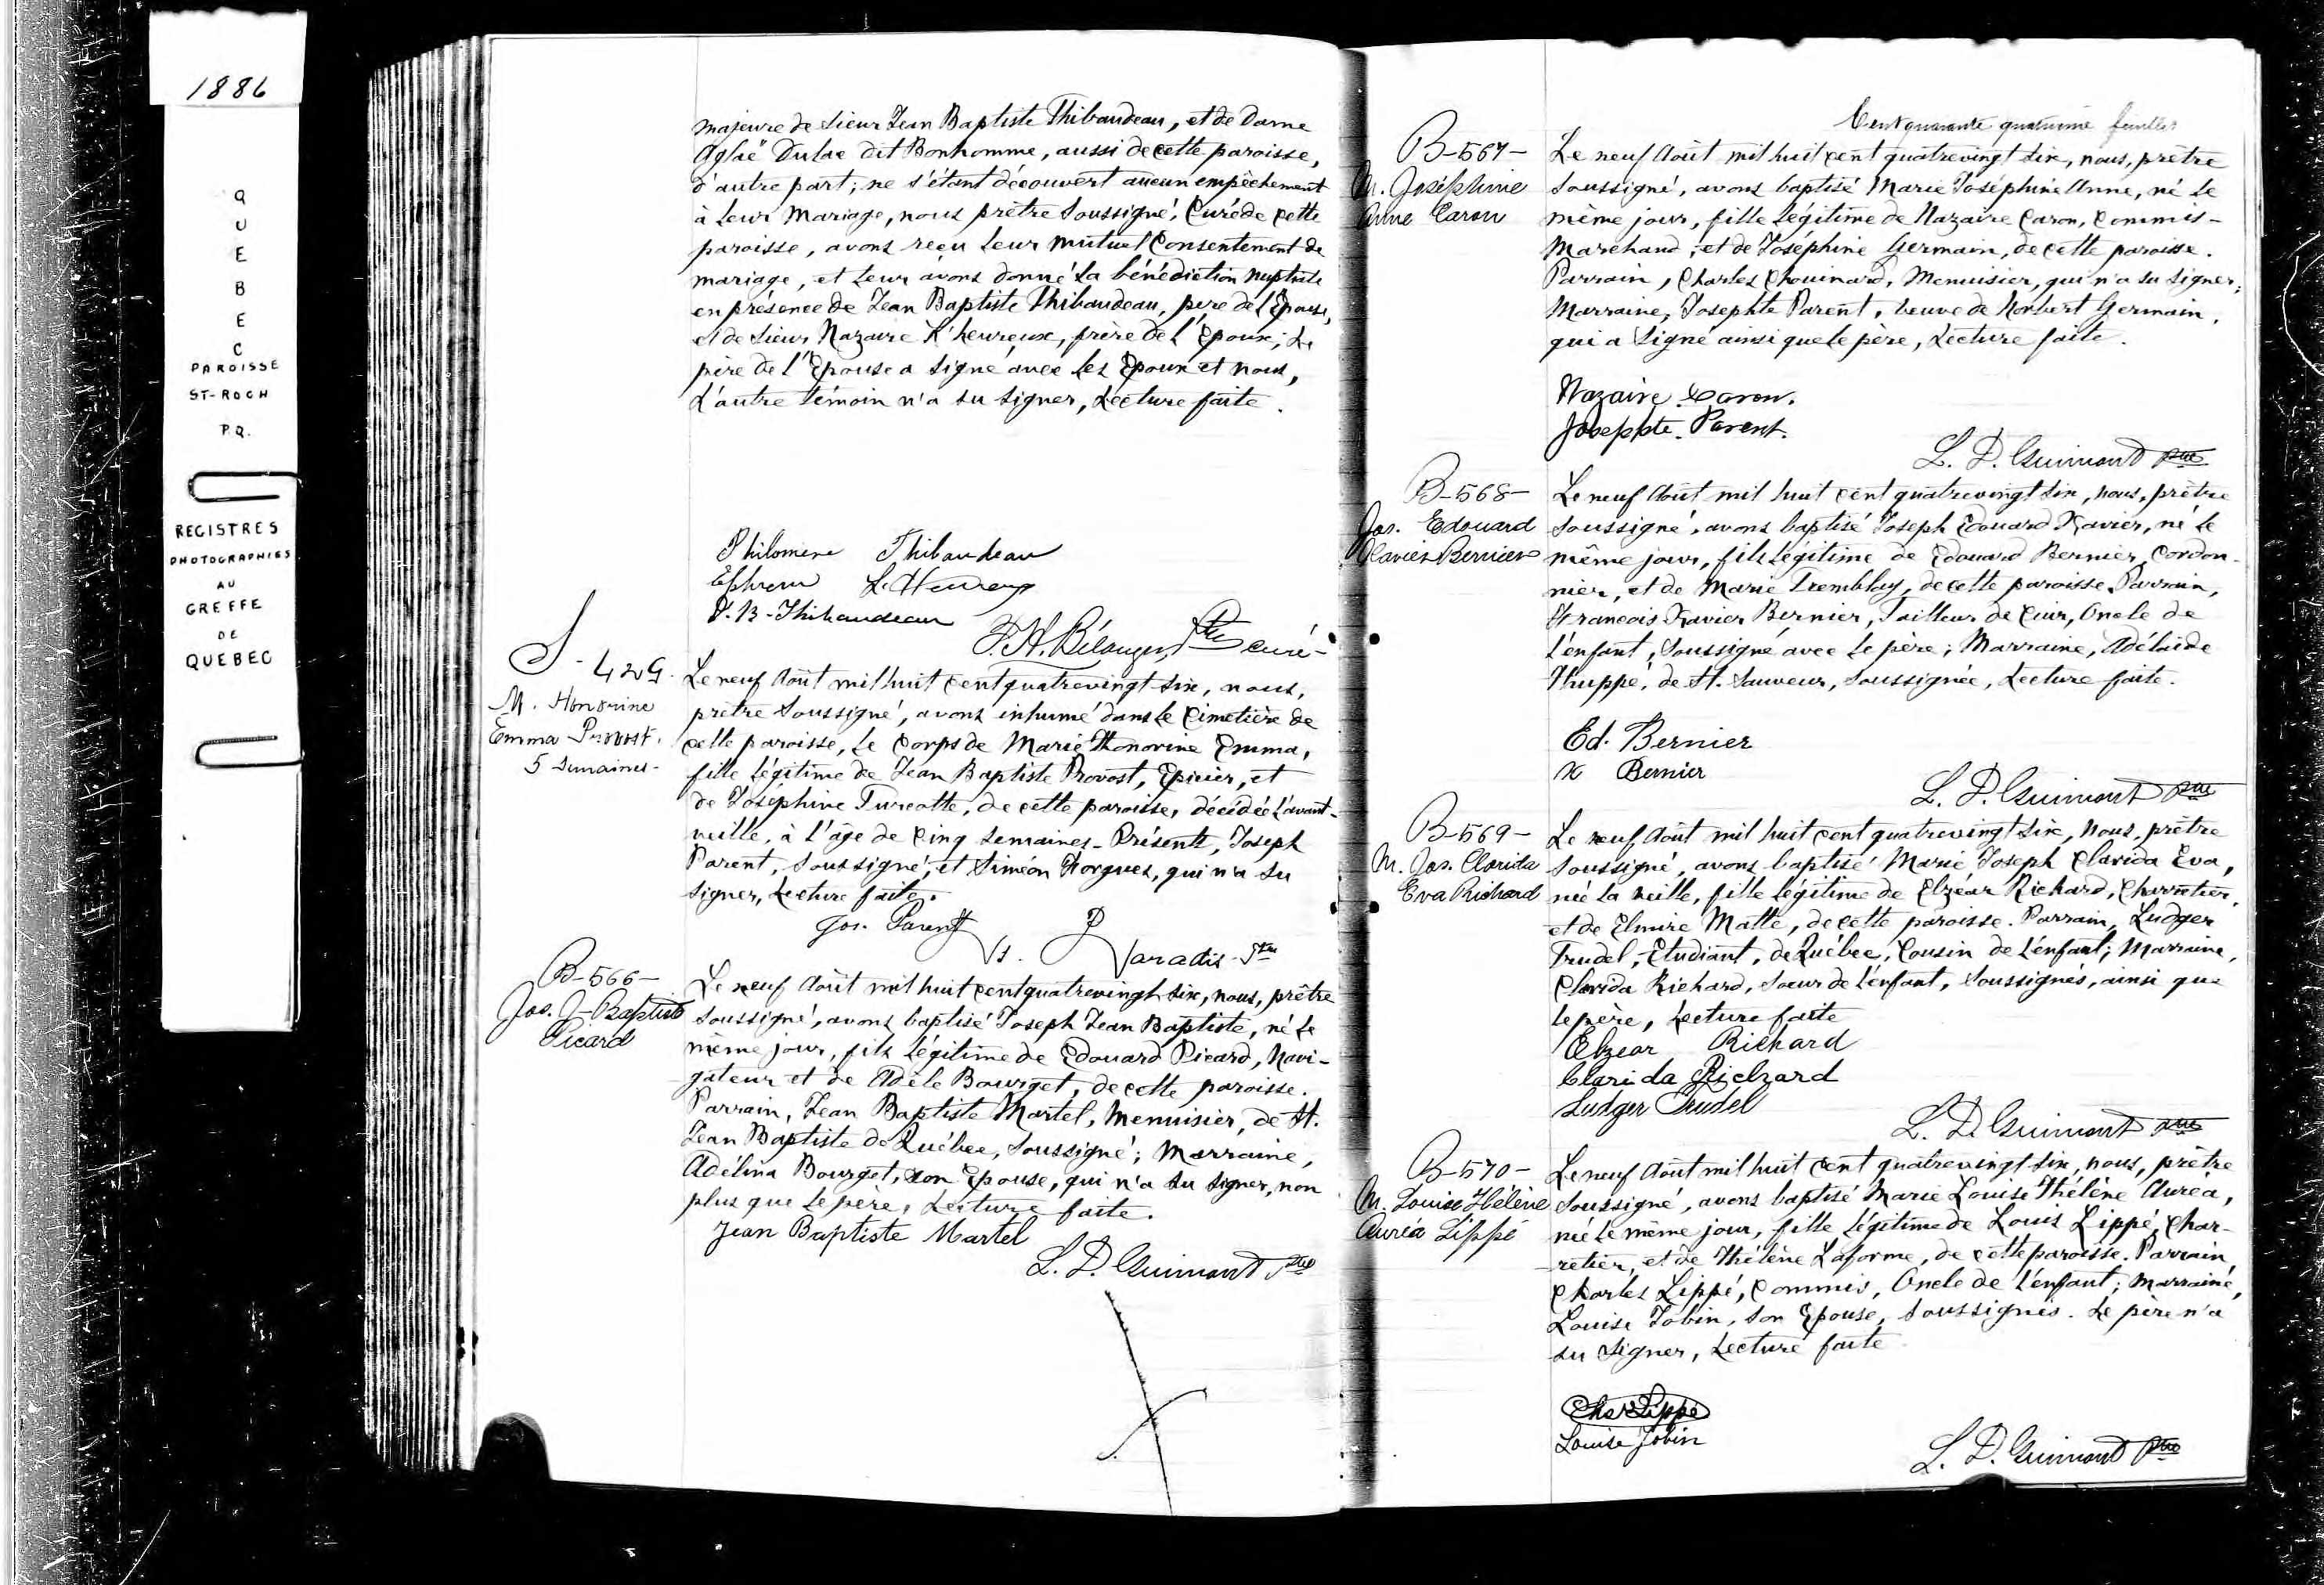 1886
QUEBEC
PAROISSE
ST-ROCH
P.Q.
REGISTRES
PHOTOGRAPHIES
AU
GREFFE
DE
QUEBEC
majeure de Sieur Jean Baptiste Thibaudeau, et de Dame
Aglaë Dulac dit Bonhomme, aussi de cette paroisse,
d'autre part; ne s'étant découvert aucun empêchement
à leur Mariage, nous prêtre Soussigné, Curé de cette
paroisse, avons reçu leur mutuel Consentement de
mariage, et leur avons donné la bénédiction nuptiale
en présence de Jean Baptiste Thibaudeau, père de l'Epouse,
et de Sieur Nazaire L'heureux, frère de l'Epoux; Le
père de l'Epouse a signé avec les Epoux et nous,
L'autre témoin n'a su signer, Lecture faite.
Philomène Thibaudeau
Ephrem L'Heureux
J. B. Thibaudeau
F. H. Bélanger, Ptre curé-
S-429.
M. Honorine
Emma Provost.
5 Semaines-
Le neuf Août mil huit cent quatrevingt six, nous,
prêtre Soussigné, avons inhumé dans le Cimetière de
cette paroisse, le Corps de Marie Honorine Emma,
fille légitime de Jean Baptiste Provost, Epicier, et
de Joséphine Turcotte, de cette paroisse, décédée l'avant-
veille, à l'âge de Cinq Semaines_ Présents, Joseph
Parent, Soussigné, et Siméon Horgues, qui n'a su
signer, Lecture faite.
Jos. Parent
Paradis Ptre
B-566-
Jos. J-Baptiste
Picard
Le neuf Août mil huit cent quatrevingt six, nous, prêtre
soussigné, avons baptisé Joseph Jean Baptiste, né le
même jour, fils légitime de Edouard Picard, Navi-
gateur et de Adèle Bourget, de cette paroisse.
Parrain, Jean Baptiste Martel, Menuisier, de St.
Jean Baptiste de Québec, Soussigné; Marraine,
Adélina Bourget, son Epouse, qui n'a su signer, non
plus que le père, Lecture faite.
Jean Baptiste Martel
L. D. Guimont Ptre
Cent quarante quatrième feuillet
B-567-
M. Joséphine
Anne Caron
Le neuf Août mil huit cent quatrevingt six, nous, prêtre
Soussigné, avons baptisé Marie Joséphine Anne, né le
même jour, fille légitime de Nazaire Caron, Commis-
Marchand, et de Joséphine Germain, de cette paroisse.
Parrain, Charles Chouinard, Menuisier, qui n'a su signer;
Marraine, Josephte Parent, veuve de Norbert Germain,
qui a signé ainsi que le père, Lecture faite.
Nazaire Caron.
Josephte Parent.
L. D. Guimont Ptre
B-568-
Jos. Edouard
Xavier Bernier
Le neuf Août mil huit cent quatrevingt six, nous, prêtre
soussigné, avons baptisé Joseph Edouard Xavier, né le
même jour, fils légitime de Edouard Bernier, Cordon-
nier, et de Marie Tremblay, de cette paroisse. Parrain,
François Xavier Bernier, Tailleur de Cuir, Oncle de
l'enfant, Soussigné avec le père; Marraine, Adélaïde
Huppé, de St. Sauveur, Soussignée, Lecture faite.
Ed. Bernier
X Bernier
L. D. Guimont Ptre
B-569-
M. Jos. Clarida
Eva Richard
Le neuf Août mil huit cent quatrevingt six, nous, prêtre
Soussigné, avons baptisé Marie Joseph Clarida Eva,
née la veille, fille légitime de Elzéar Richard, Charretier,
et de Elmire Matte, de cette paroisse. Parrain, Ludger
Trudel, Etudiant, de Québec, Cousin de l'enfant; Marraine,
Clarida Richard, Soeur de l'enfant, Soussignés, ainsi que
le père, Lecture faite
Elzear Richard
Clarida Richard
Ludger Trudel
L. D. Guimont Ptre
B-570-
M. Louise Hélène
Auréa Lippé
Le neuf Août mil huit cent quatrevingt six, nous, prêtre
Soussigné, avons baptisé Marie Louise Hélène Auréa,
née le même jour, fille légitime de Louis Lippé, Char-
retier, et de Hélène Laforme, de cette paroisse. Parrain,
Charles Lippé, Commis, Oncle de l'enfant; Marraine,
Louise Jobin, Son Epouse, Soussignés. Le père n'a
su signer, Lecture faite
Chs Lippé
Louise Jobin
L. D. Guimont Ptre